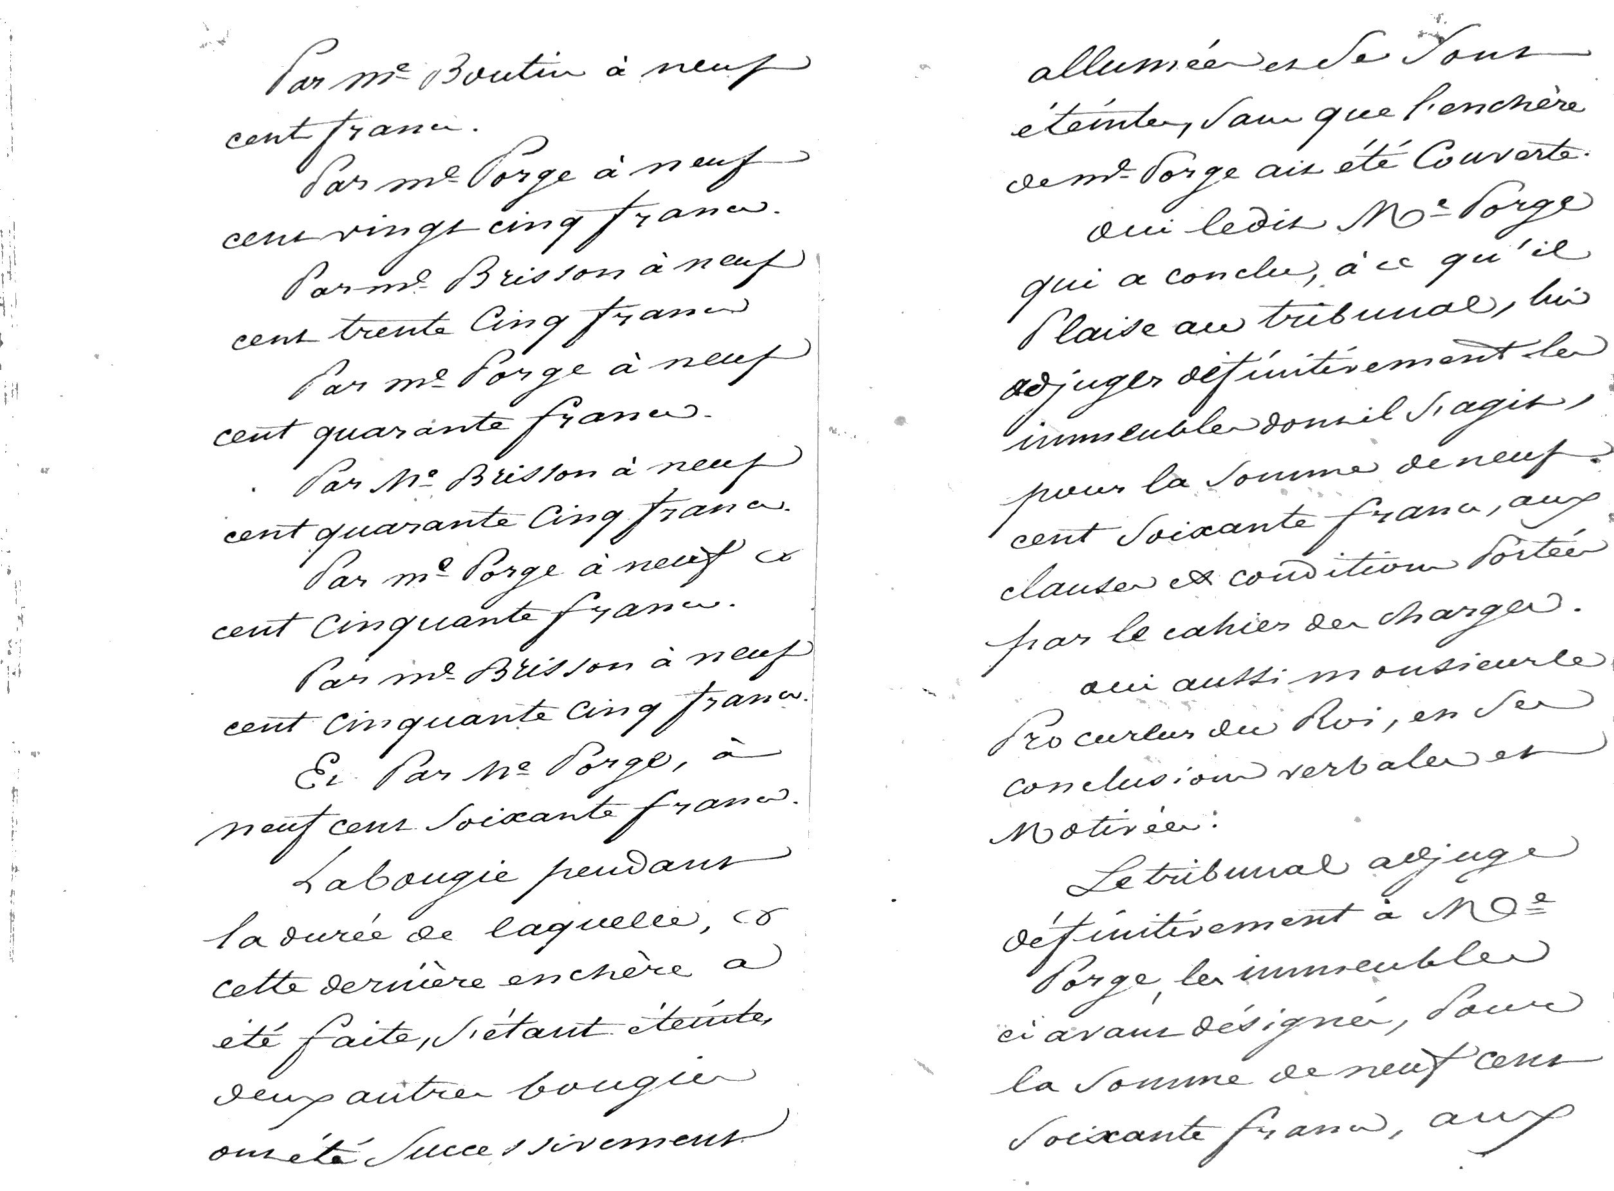 Par Me Boutin à neuf
cent francs.
Par Me Porge à neuf
cent vingt cinq francs.
Par Me Brisson à neuf
cent trente cinq francs
Par Me Porge à neuf
cent quarante francs.
Par Me Brisson à neuf
cent quarante cinq francs.
Par Me Porge à neuf
cent cinquante francs.
Par Me Brisson à neuf
cent cinquante cinq francs.
Et Par Me Porge, à
neuf cent soixante francs.
La bougie pendant
la durée de laquelle,
cette dernière enchère a
été faite, s'étant éteinte,
deux autres bougies
ont été successivement
allumées et se sont
éteintes, sans que l'enchère
de Me Porge ait été couverte.
oui ledit Me Porge
qui a conclu, à ce qu'il
Plaise au tribunal, lui
adjuger définitivement les
immeubles dont il s'agit,
pour la somme de neuf
cent soixante francs, aux
clauses et conditions Portées
par le cahier des charges.
oui aussi monsieur le
Procureur du Roi, en ses
conclusions verbales et
Motivées:
Le tribunal adjuge
définitivement à Me
Porge, les immeubles
ci avant désignés, Pour
la somme de neuf cent
soixante francs, aux